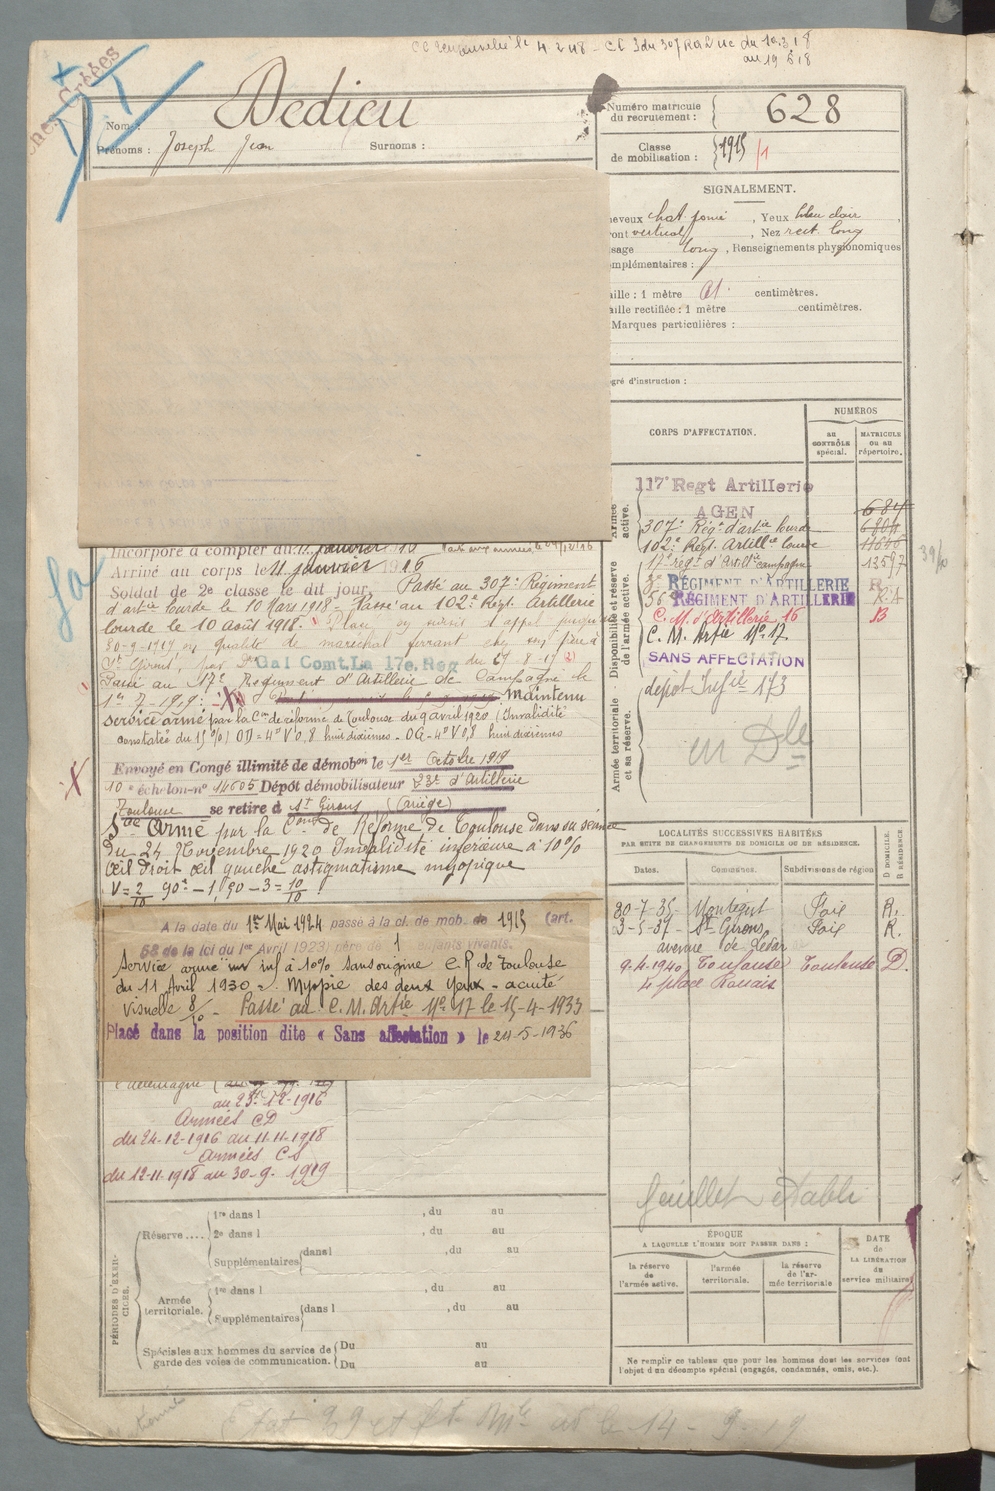 CC renouvelé le 4 2 48 - CC 3 du 307 RA du 10.3.18
au 19 18
Nom :
Dedieu
Prénoms : Joseph Jean Surnoms :
Numéro matricule
du recrutement : 628
Classe
de mobilisation : 1915 /1
SIGNALEMENT.
heveux chat. foncé , Yeux bleu clair ,
ront vertical , Nez rect. long
sage long , Renseignements physionomiques
mplémentaires :
aille : 1 mètre 61 centimètres.
aille rectifiée : 1 mètre centimètres.
Marques particulières :
gré d'instruction :
CORPS D'AFFECTATION.
NUMÉROS
au
CONTRÔLE
spécial.
MATRICULE
ou au
répertoire.
Armée
active.
Disponibilité et réserve
de l'armée active.
Armée territoriale
et sa réserve.
117e Regt Artillerie
AGEN
307e Rég. d'artie lourde
102e Régt. Artillie lourde
17e régt d'Artillie campagne 13597
RÉGIMENT D'ARTILLERIE R
56e RÉGIMENT D'ARTILLERIE
C. M. d'Artillerie 16 B
C. M. Artie No 17
SANS AFFECTATION
dépôt Infie 173
39/40
Incorporé à compter du 11 janvier 1916
Arrivé au corps le 11 janvier 1916
Soldat de 2e classe le dit jour. Passé au 307e Régiment
d'artie lourde le 10 Mars 1918 - Passé au 102e Régt. Artillerie
lourde le 10 Août 1918. Placé en sursis d'appel jusqu'
30-9-1919 en qualité de maréchal ferrant chez son père à
St Girons, par Don Gal Comt. La 17e. Reg du 27-8-19 2)
Passé au 17e Régiment d'Artillerie de Campagne le
1er 7-1919. Maintenu
service armé par la Con de réforme de Toulouse du 9 avril 1920 (Invalidité
constatée du 15%) OD = 4° V 0,8 huit dixièmes - OG - 4° V 0,8 huit dixièmes
Envoyé en Congé illimité de démobon le 1er Octobre 1919
10e échelon-no 14605 Dépôt démobilisateur 23e d'Artillerie
Toulouse se retire à St Girons (Ariège)
Sce Armé par la Con de Réforme de Toulouse dans sa séance
du 24 Novembre 1920 Invalidité inférieure à 10%
œil droit œil gauche astigmatisme myopique
V = 2/10 90° - 1,90 - 3 = 10/10
A la date du 1er Mai 1924 passé à la cl. de mob. de 1915 (art.
58 de la loi du 1er Avril 1923) père de 1 enfants vivants.
Service armé inf à 10% sans origine C.R de Toulouse
du 11 Avril 1930 - Myopie des deux yeux - acuité
visuelle 8/10 - Passé au C. M. Artie No 17 le 15-4-1933
Placé dans la position dite « Sans affectation » le 24-5-1936
l'allemagne
au 23-12-1916
Armées CD
du 24-12-1916 au 11-11-1918
Armées CS
du 12-11-1918 au 30-9-1919
LOCALITÉS SUCCESSIVES HABITÉES
PAR SUITE DE CHANGEMENTS DE DOMICILE OU DE RÉSIDENCE.
D DOMICILE.
R RÉSIDENCE.
Dates. Communes. Subdivisions de région
30-7-35- Montégut Foix R.
3-5-37- St Girons, Foix R.
avenue de
9.4.1940 Toulouse Toulouse D.
4 place Rouaix
feuillet établi
PÉRIODES D'EXER-
CICES.
Réserve ....
1re dans l , du au
2e dans l , du au
Supplémentaires dans l , du au
Armée
territoriale.
1re dans l , du au
Supplémentaires dans l , du au
Spéciales aux hommes du service de
garde des voies de communication.
Du au
Du au
ÉPOQUE
A LAQUELLE L'HOMME DOIT PASSER DANS :
la réserve
de
l'armée active.
l'armée
territoriale.
la réserve
de l'ar-
mée territoriale
DATE
de
LA LIBÉRATION
du
service militaire
Ne remplir ce tableau que pour les hommes dont les services font
l'objet d'un décompte spécial (engagés, condamnés, omis, etc.).